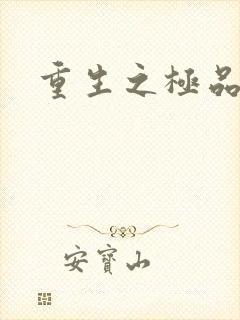 重生之極品
安寶山